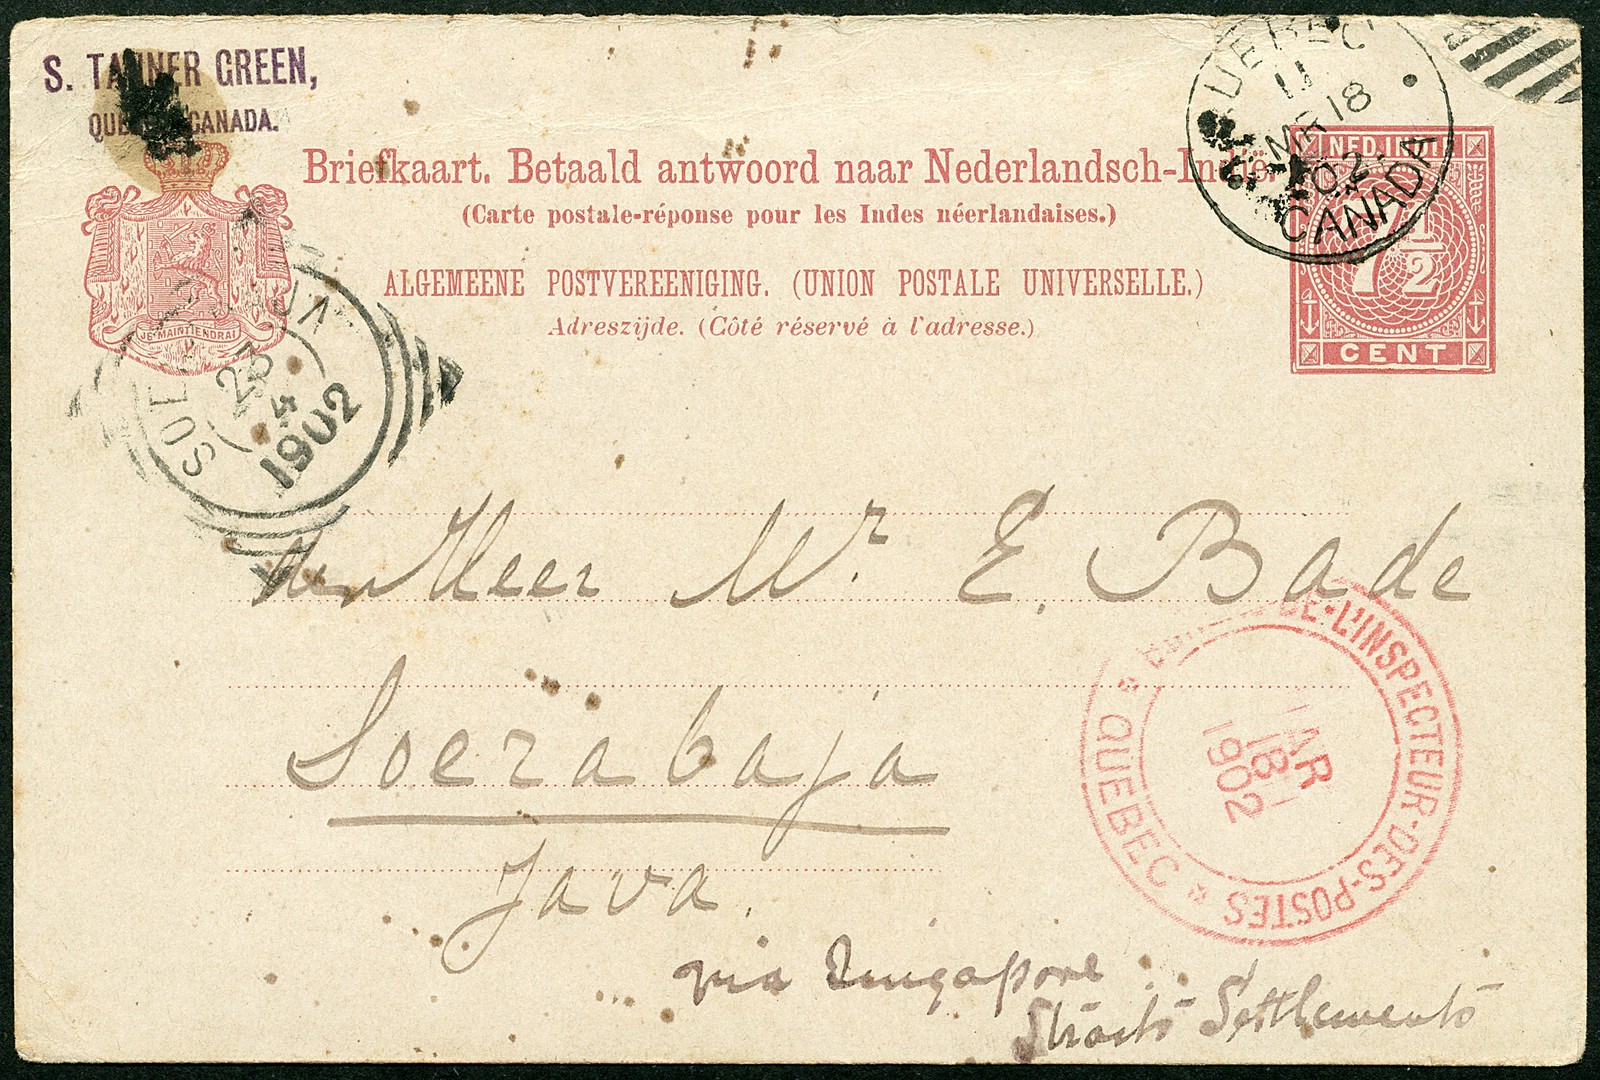 S. TANNER GREEN,
QUEBEC CANADA.
QUEBEC
11
MR 18
02
CANADA
Briefkaart. Betaald antwoord naar Nederlandsch-Indië
(Carte postale-réponse pour les Indes néerlandaises.)
ALGEMEENE POSTVEREENIGING. (UNION POSTALE UNIVERSELLE.)
Adreszijde. (Côté réservé à l'adresse.)
NED. INDIË
7 1/2
CENT
JE MAINTIENDRAI
SOERABAJA
23
4
1902
Heer Mr. E. Bade
Soerabaja
Java.
via Singapore
Straits Settlements
DE-L'INSPECTEUR-DES-POSTES
MAR
18
1902
* QUEBEC *